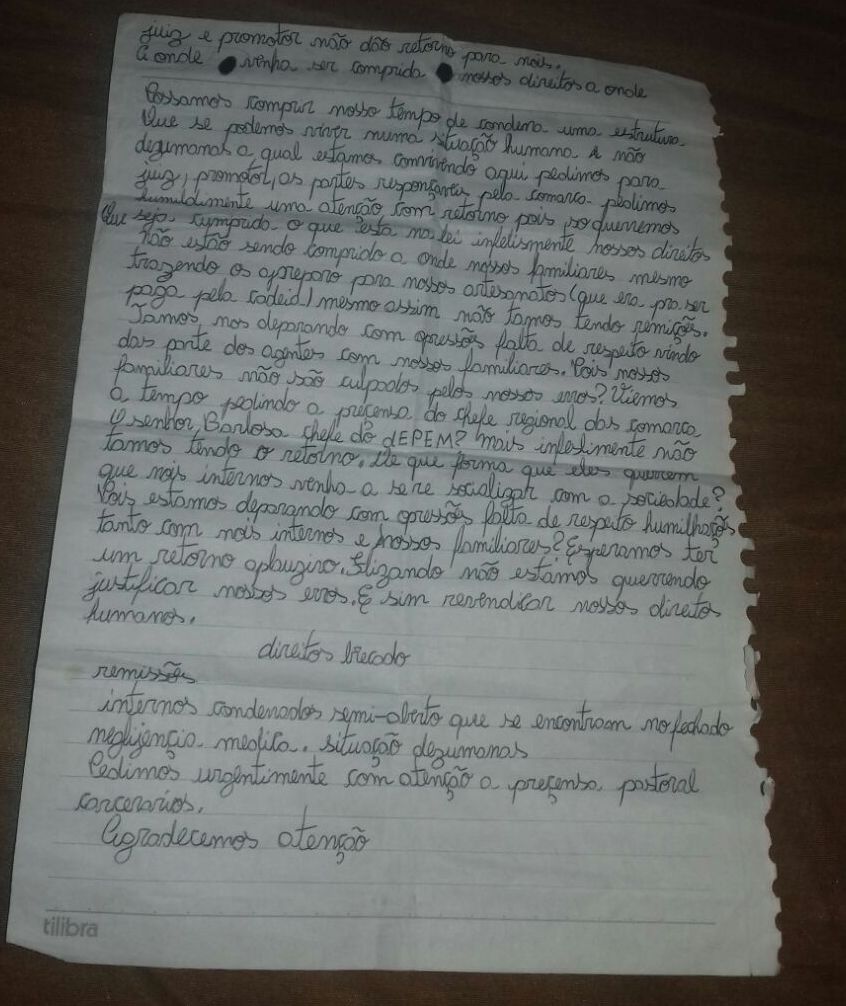 juiz e promotor não dão retorno para nois.
A onde venha ser comprida nossos direitos a onde
Possamos comprir nosso tempo de condena uma estrutura
Que se podemos viver numa situação humana e não
dezumanas a qual estamos convivendo aqui pedimos para
juiz, promotor, as partes responçaveis pela comarca pedimos
humildimente uma atenção com retorno pois so querremos
Que seja cumprida o que esta na lei infelismente nossos direitos
não estão sendo comprido a onde nossos familiares mesmo
trazendo os apreparo para nossos artesanatos (que era pra ser
paga pela cadeia) mesmo assim não tamos tendo remições.
Tamos nos deparando com opressões falta de respeito vindo
das parte dos agentes com nossos familiares. Pois nossos
familiares não são culpados pelos nossos erros? Viemos
a tempo pedindo a preçensa do chefe regional das comarca
O senhor, Barbosa chefe do dEPEM? mais infeslimente não
tamos tendo o retorno. De que forma que eles querrem
que nois internos venha a se re socializar com a sociedade?
Pois estamos deparando com opressões falta de respeito humilhações
tanto com nois internos e nossos familiares? Esperamos ter
um retorno aplauzivo. Frizando não estamos querrendo
justificar nossos erros. E sim revendicar nossos direitos
humanos.
direitos brecado
remissões
internos condenados semi-aberto que se encontram no fechado
neglijençia medica. situação dezumanas
Pedimos urgentimente com atenção a preçensa pastoral
carcerarios.
Agradecemos atenção
tilibra